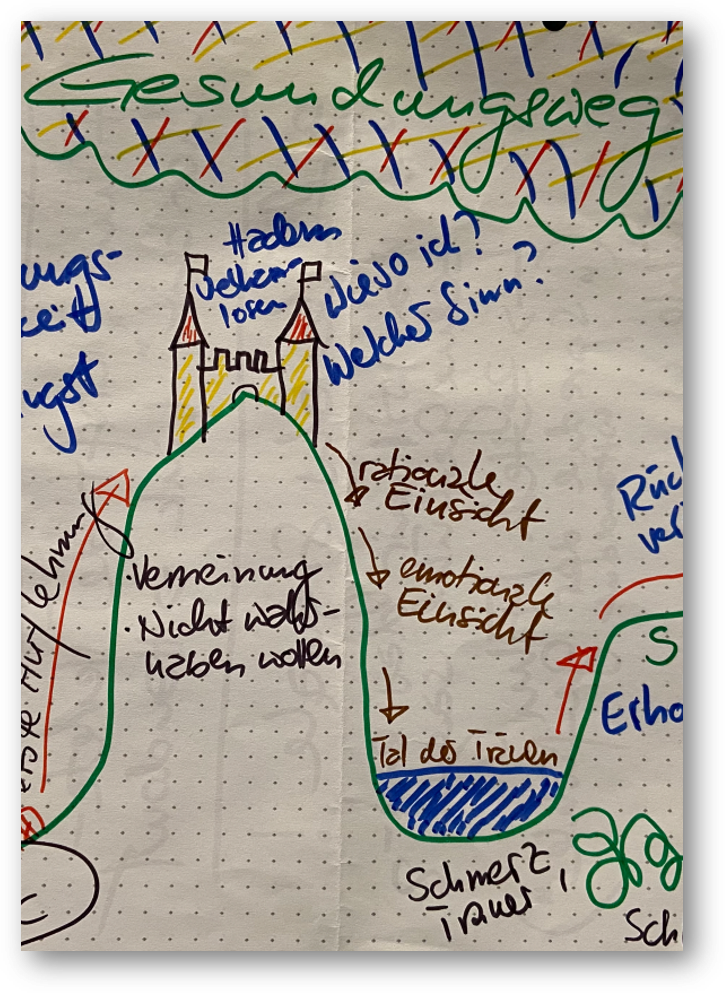 Gesundungsweg
Hadern
Wieso ich?
Welcher Sinn?
ungs-
eit
ngst
rationale
Einsicht
emotionale
Einsicht
Verneinung
Nicht wahr-
haben wollen
erste Auflehnung
Tal der Tränen
Schmerz,
Trauer
Rüc
ver
S
Erho
Sch